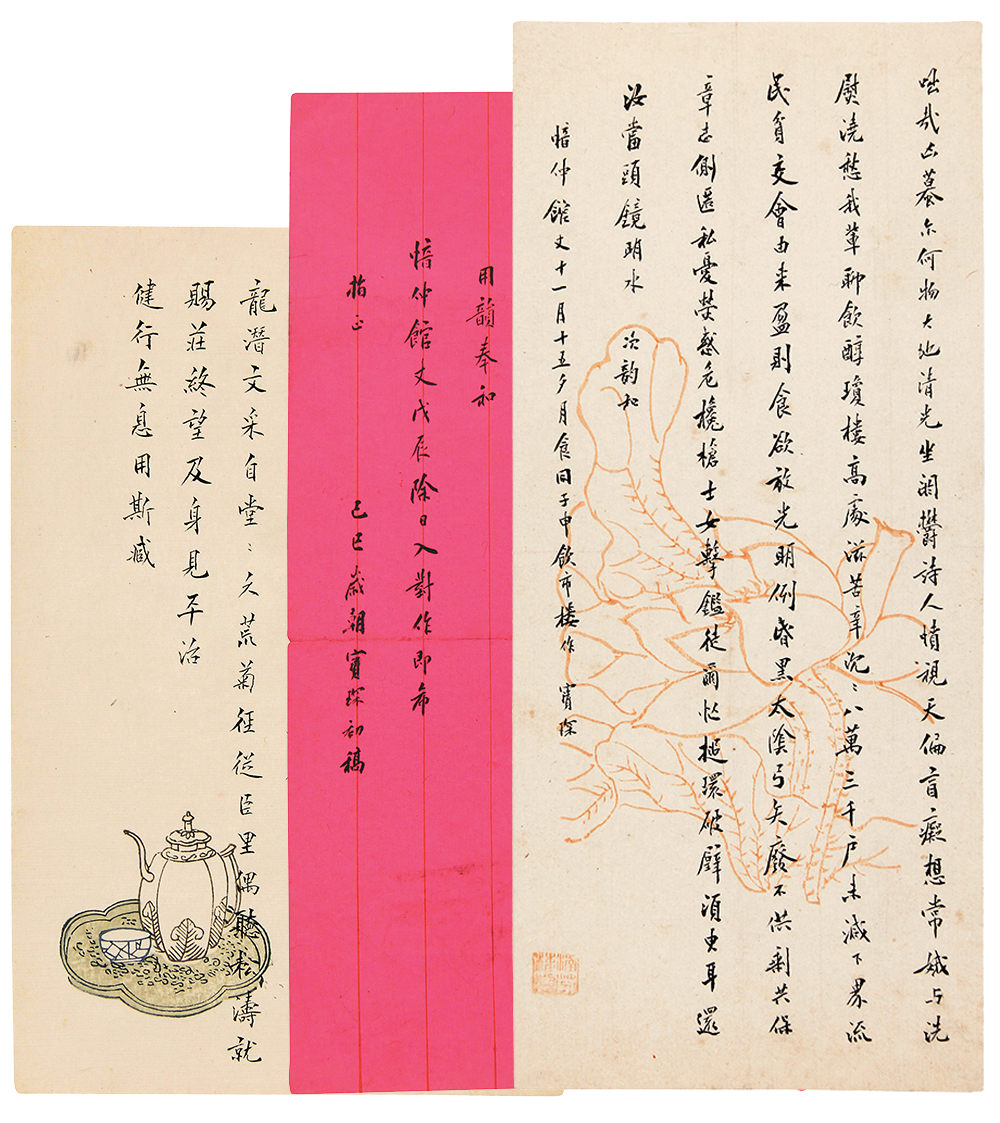 咄哉虫蟇尔何物大地清光坐洞欝詩人憤視天偏盲癡想常娥与洗
熨澆愁我軰聊飲醇瓊樓高處滋苦辛沉〻八萬三千戶未減下界流
民貧交會由来盈則食欲放光明例昏黑太陰弓矢廢不供剩共保
章志側匿私憂熒惑危欃槍士女擊鑑徒爾忙搥環破璧須臾耳還
汝當頭鏡明水 次韵和
愔仲館丈十一月十五夕月食同子申飲市樓作 寳琛
用韻奉和
愔仲館丈戊辰除日入對作即希
指正 己巳歲朝寳琛初稿
龍潛文采自堂〻久荒菊徑從臣里偶聽松濤就
賜莊終望及身見平治
健行無息用斯臧